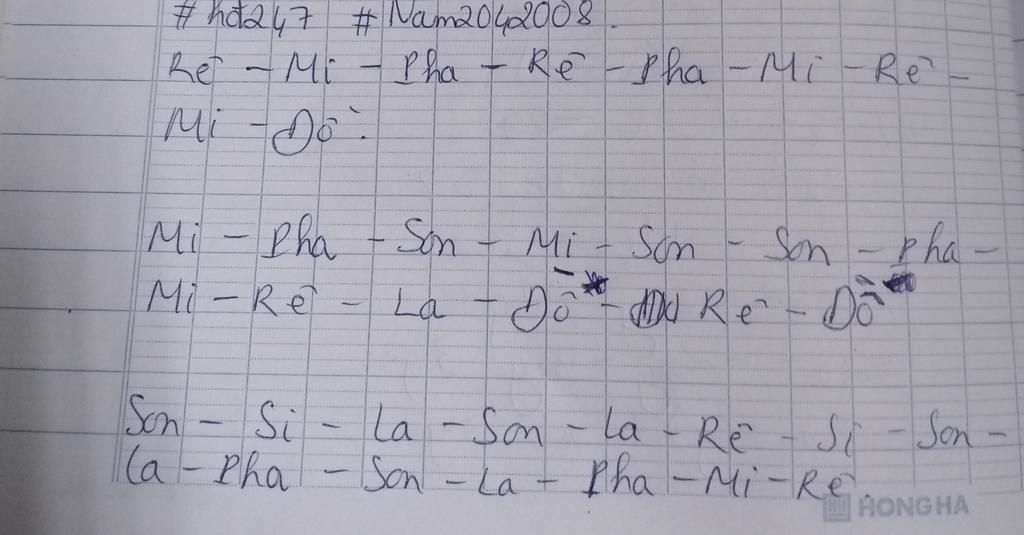 #hdt247 #Nam2042008.
Rê - Mi - Pha - Rê - Pha - Mi - Rê -
Mi - Đồ.
Mi - Pha - Son - Mi - Son - Son - Pha -
Mi - Rê - La - Đô - Rê - Đô
Son - Si - La - Son - La - Rê - Si - Son -
La - Pha - Son - La - Pha - Mi - Rê.
HONG HA